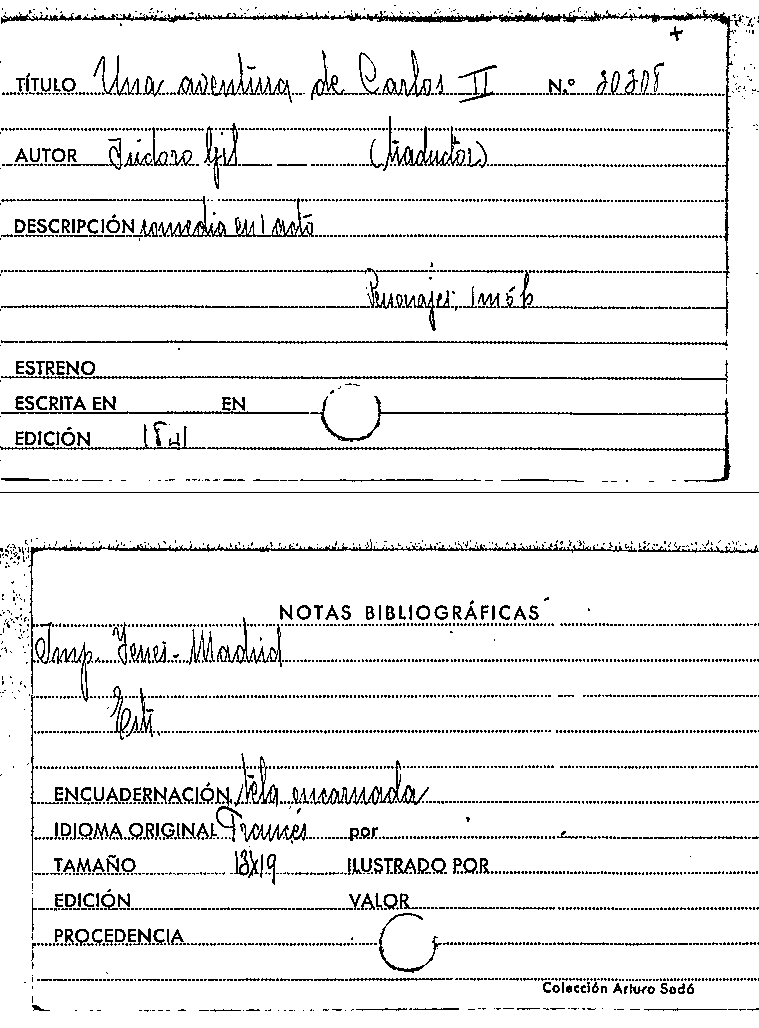 +
TÍTULO Una aventura de Carlos II N.º 20208
AUTOR Isidoro Gil (traductor)
DESCRIPCIÓN comedia en 1 acto
Personajes, 1m 5h
ESTRENO
ESCRITA EN EN
EDICIÓN 1841
NOTAS BIBLIOGRÁFICAS
Imp. Yenes - Madrid
Est.
ENCUADERNACIÓN tela encarnada
IDIOMA ORIGINAL Francés por
TAMAÑO 13x19 ILUSTRADO POR
EDICIÓN VALOR
PROCEDENCIA
Colección Arturo Sedó